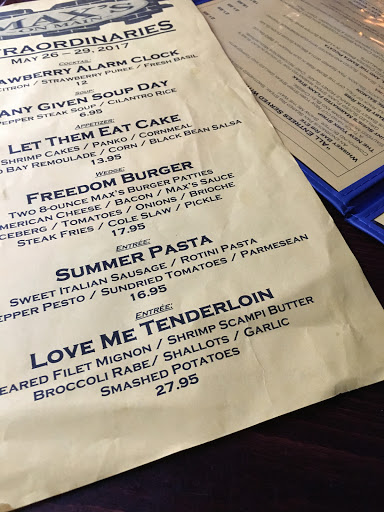 MAX'S
TRAORDINARIES
MAY 26 – 29, 2017
COCKTAIL:
AWBERRY ALARM CLOCK
CITRON / STRAWBERRY PUREE / FRESH BASIL
12
SOUP:
ANY GIVEN SOUP DAY
PEPPER STEAK SOUP / CILANTRO RICE
6.95
APPETIZER:
LET THEM EAT CAKE
SHRIMP CAKES / PANKO / CORNMEAL
D BAY REMOULADE / CORN / BLACK BEAN SALSA
13.95
WEDGE:
FREEDOM BURGER
TWO 8-OUNCE MAX'S BURGER PATTIES
AMERICAN CHEESE / BACON / MAX'S SAUCE
ICEBERG / TOMATOES / ONIONS / BRIOCHE
STEAK FRIES / COLE SLAW / PICKLE
17.95
ENTRÉE:
SUMMER PASTA
SWEET ITALIAN SAUSAGE / ROTINI PASTA
EPPER PESTO / SUNDRIED TOMATOES / PARMESEAN
16.95
ENTRÉE:
LOVE ME TENDERLOIN
EARED FILET MIGNON / SHRIMP SCAMPI BUTTER
BROCCOLI RABE / SHALLOTS / GARLIC
SMASHED POTATOES
27.95
*ALL ENTREES SERVED W